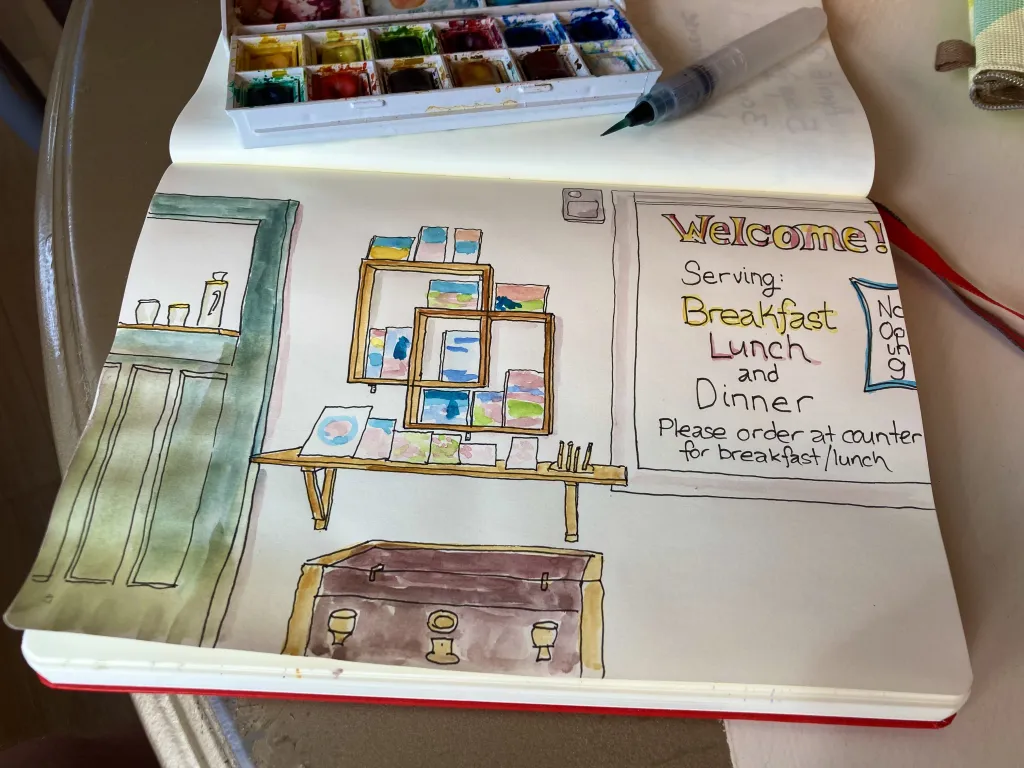 Welcome!
Serving:
Breakfast
Lunch
and
Dinner
Please order at counter
for breakfast/lunch
No
Op
in
g